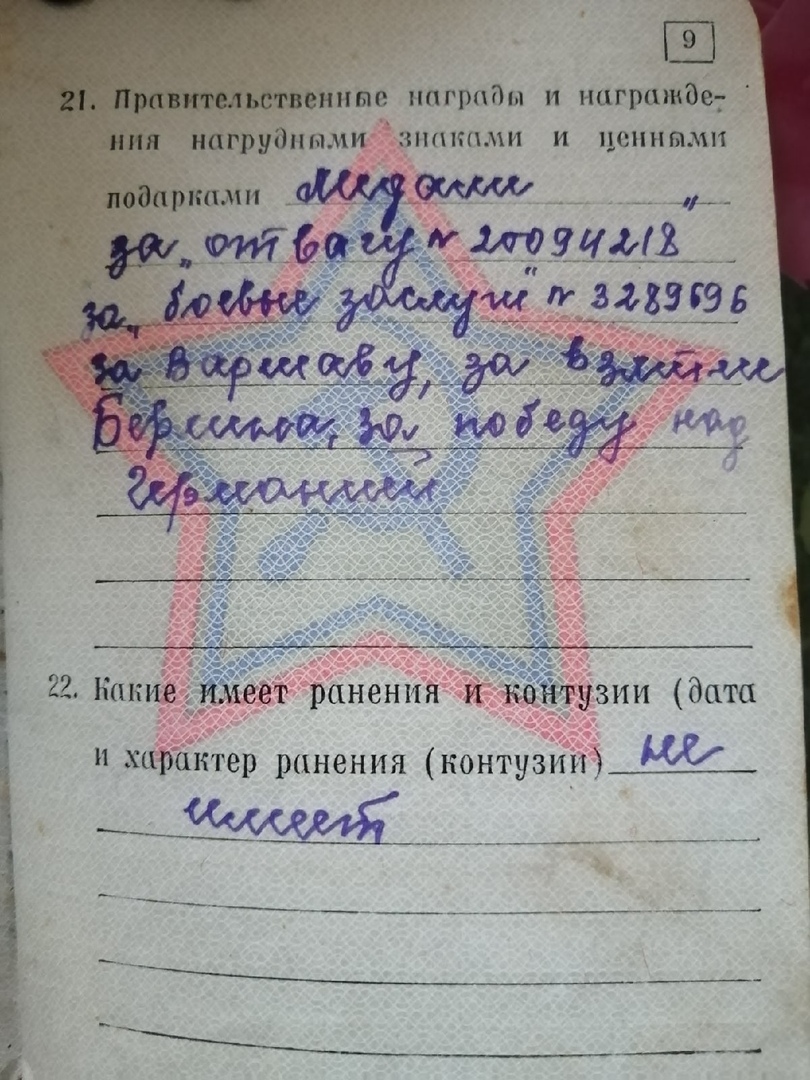 9
21. Правительственные награды и награжде-
ния нагрудными знаками и ценными
подарками Медали
за „отвагу" № 20094218
за „боевые заслуги" № 3289696
за Варшаву, за взятие
Берлина, за победу над
Германией
22. Какие имеет ранения и контузии (дата
и характер ранения (контузии) не
имеет